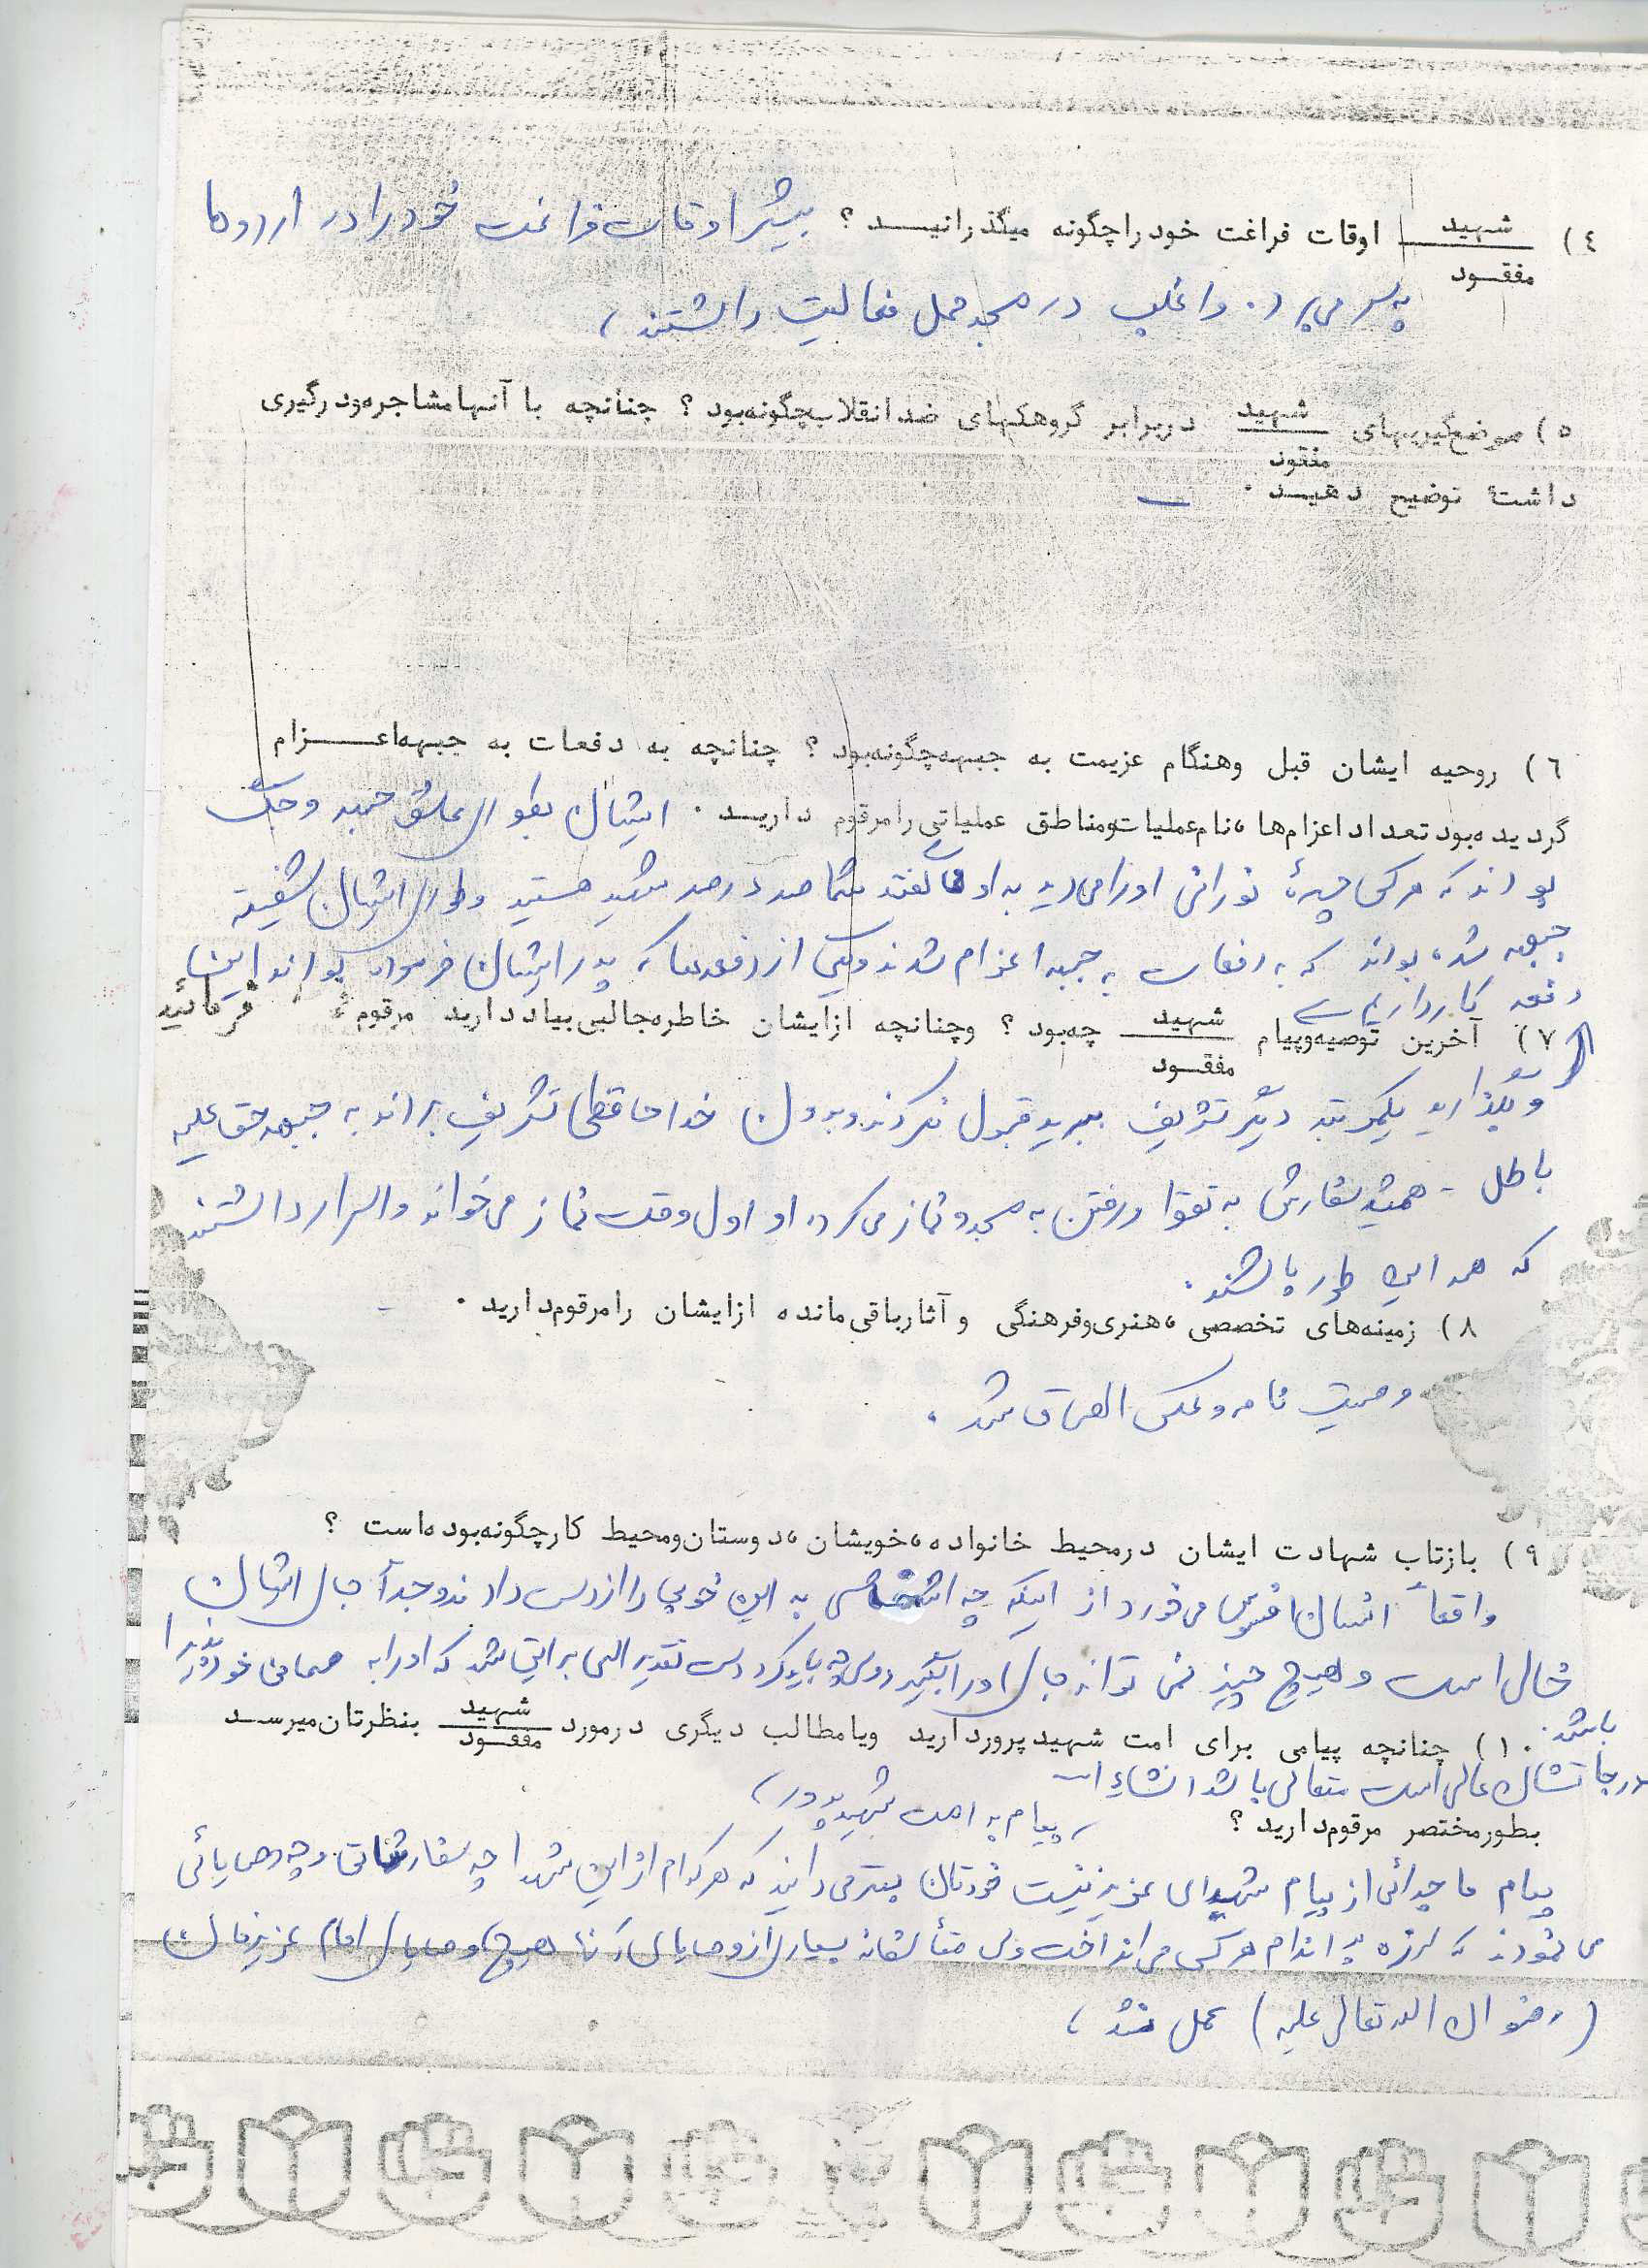 ۴) شهید اوقات فراغت خود را چگونه میگذرانیـــد ؟ بیشتر اوقات فراغت خود را در اردوها
مفقـود
به سر می‌برد. و اغلب در مسجد محل فعالیت داشتند،
۵) موضع‌گیریهای شهید در برابر گروهکهای ضد انقلاب چگونه بود ؟ چنانچه با آنها مشاجره و درگیری
مفقود
داشتهٔ توضیح دهیـد . ــ
۶) روحیه ایشان قبل وهنگام عزیمت به جبهه چگونه بود ؟ چنانچه به دفعات به جبهه اعـــزام
گردیده بود تعداد اعزام‌ها، نام عملیات و مناطق عملیاتی را مرقوم داریـد . ایشان بطوری عاشق جبهه و جنگ
بودند که هر کس چهرهٔ نورانی او را می‌دید به او می‌گفتند شما صد در صد شهید هستید و طوری ایشان شیفته
جبهه شده بودند که به دفعات به جبهه اعزام شدند و یکی از دفعه‌ها که پدر ایشان فرموده بودند این
دفعه کار داریم
۷) آخرین توصیه و پیام شهید چه بود ؟ وچنانچه از ایشان خاطره جالبی بیاد دارید مرقوم فرمائید
مفقـود
و بگذارید یکمرتبه دیگر تشریف ببرید قبول نکردند و بدون خداحافظی تشریف بردند به جبهه حق علیه
باطل - همیشه سفارش به تقوا و رفتن به مسجد و نماز می‌کرد، او اول وقت نماز می‌خواند و اصرار داشتند
که همه این طور باشند.
۸) زمینه‌های تخصصی، هنری و فرهنگی و آثار باقی مانده از ایشان را مرقوم دارید . -
وصیت نامه و عکس الصاق شد.
۹) بازتاب شهادت ایشان در محیط خانواده، خویشان، دوستان و محیط کار چگونه بوده است ؟
واقعاً انسان افسوس می‌خورد از اینکه چه اشخاصی به این خوبی را از دست دادند و جداً جای ایشان
خالی است و هیچ چیز نمی تواند جای او را بگیرد ولی چه باید کرد دست تقدیر الهی بر این شد که او را به مهمانی خود پذیرا
باشد.
۱۰) چنانچه پیامی برای امت شهید پرور دارید ویا مطالب دیگری در مورد شهید بنظرتان میرسـد
مفقـود
درجاتشان عالی است متعالی باشد انشاءا...
بطور مختصر مرقوم دارید ؟ ، پیام به امت شهید پرور،
پیام ما جدائی از پیام شهدای عزیز نیست خودتان بهتر می دانید که هر کدام از این شهدا چه سفارشاتی و چه وصایائی
می نمودند که لرزه به اندام هر کسی می انداخت ولی متأسفانه بسیاری از وصایای آنها هیچ وصایای امام عزیزمان
(رضوان الله تعالی علیه) عمل نشد،